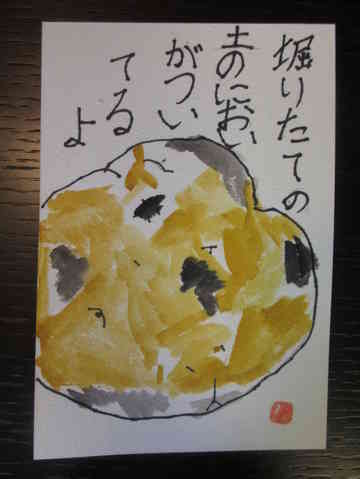 掘りたての
土のにおい
がつい
てる
よ